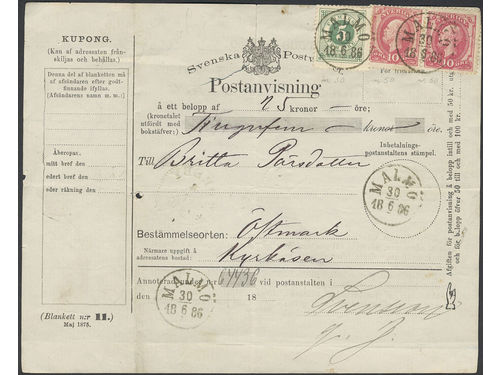 KUPONG.
(Kan af adressaten från-
skiljas och behållas.)
Denna del af blanketten må
af afsändaren efter godt-
finnande ifyllas.
(Afsändarens namn m. m.)
Åberopar:
mitt bref den
edert bref den
eder räkning den
(Blankett n:r 11.)
Maj 1875.
Svenska Postv
Postanvisning
å ett belopp af 25 kronor öre;
(kronetalet
utfördt med
bokstäfver:) Tjugufem kronor öre.
Till Britta Parsdotter
Inbetalnings-
postanstaltens stämpel.
Bestämmelseorten: Östmark
Närmare uppgift å
adressatens bostad: Kyrkåsen
Annoterad under n:r 64436 vid postanstalten i
den 18
MALMÖ
30
18 6 86
MALMÖ
30
18 6 86
MALMÖ
18 6 86
MALMÖ
30
18 6 86
5
SVERIGE
10
10
Afgiften för postanvisning å belopp intill och med 50 kr. utgör
och för belopp öfver 50 till och med 100 kr.